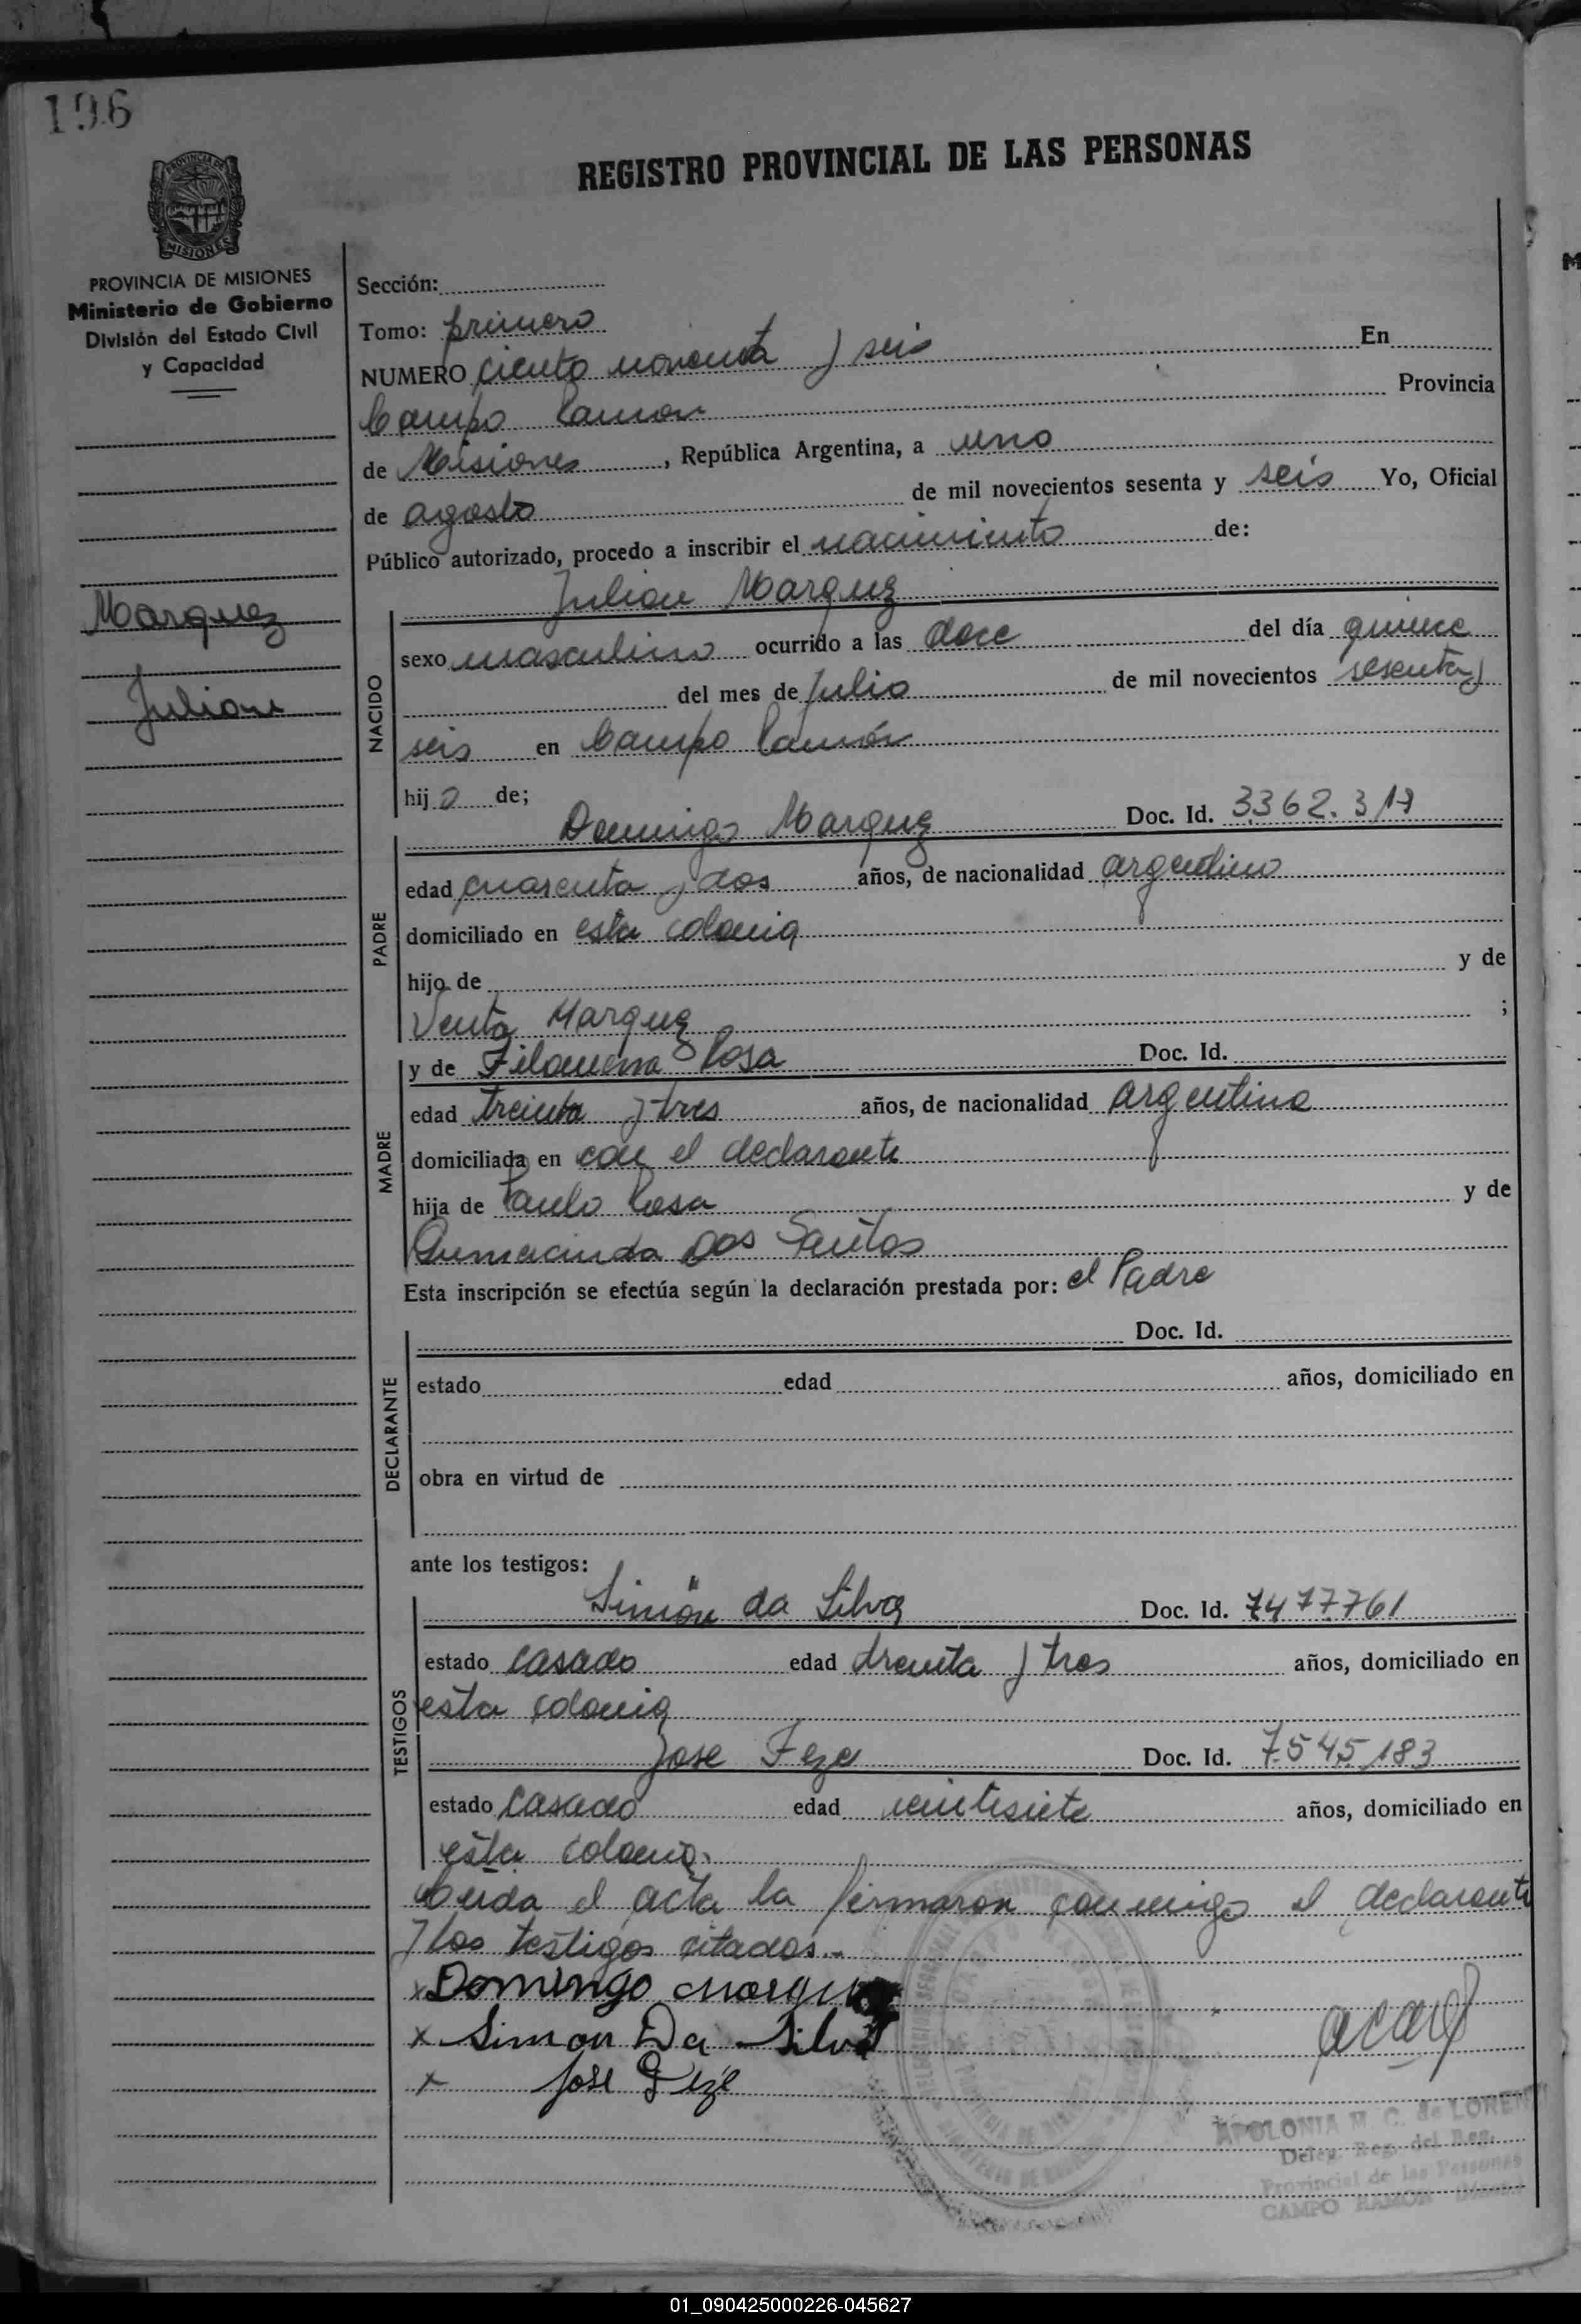 196
REGISTRO PROVINCIAL DE LAS PERSONAS
PROVINCIA DE
MISIONES
PROVINCIA DE MISIONES
Ministerio de Gobierno
División del Estado Civil
y Capacidad
Marquez
Julian
Sección:
Tomo: primero
NUMERO ciento noventa y seis En
Campo Ramon Provincia
de Misiones, República Argentina, a uno
de agosto de mil novecientos sesenta y seis Yo, Oficial
Público autorizado, procedo a inscribir el nacimiento de:
Julian Marquez
NACIDO
sexo masculino ocurrido a las doce del día quince
del mes de Julio de mil novecientos sesenta y
seis en Campo Ramón
hijo de;
PADRE
Domingo Marquez Doc. Id. 3362.317
edad cuarenta y dos años, de nacionalidad argentino
domiciliado en esta colonia
hijo de y de
Marquez ;
MADRE
y de Filomena Rosa Doc. Id.
edad treinta y tres años, de nacionalidad argentina
domiciliada en con el declarante
hija de Paulo Rosa y de
Dos Santos
Esta inscripción se efectúa según la declaración prestada por: el Padre
DECLARANTE
Doc. Id.
estado edad años, domiciliado en
obra en virtud de
ante los testigos:
TESTIGOS
Simón da Silva Doc. Id. 7477.761
estado casado edad treinta y tres años, domiciliado en
esta colonia
Jose Doc. Id. 7.545.183
estado casado edad veintisiete años, domiciliado en
esta colonia.
Leida el acta la firmaron conmigo el declarante
y los testigos citados.-
x Domingo Marquez
x Simon Da Silva
x Jose
APOLONIA M. C. de LOREN
Deleg. Reg. del Reg.
Provincial de las Personas
CAMPO RAMON
01_090425000226-045627